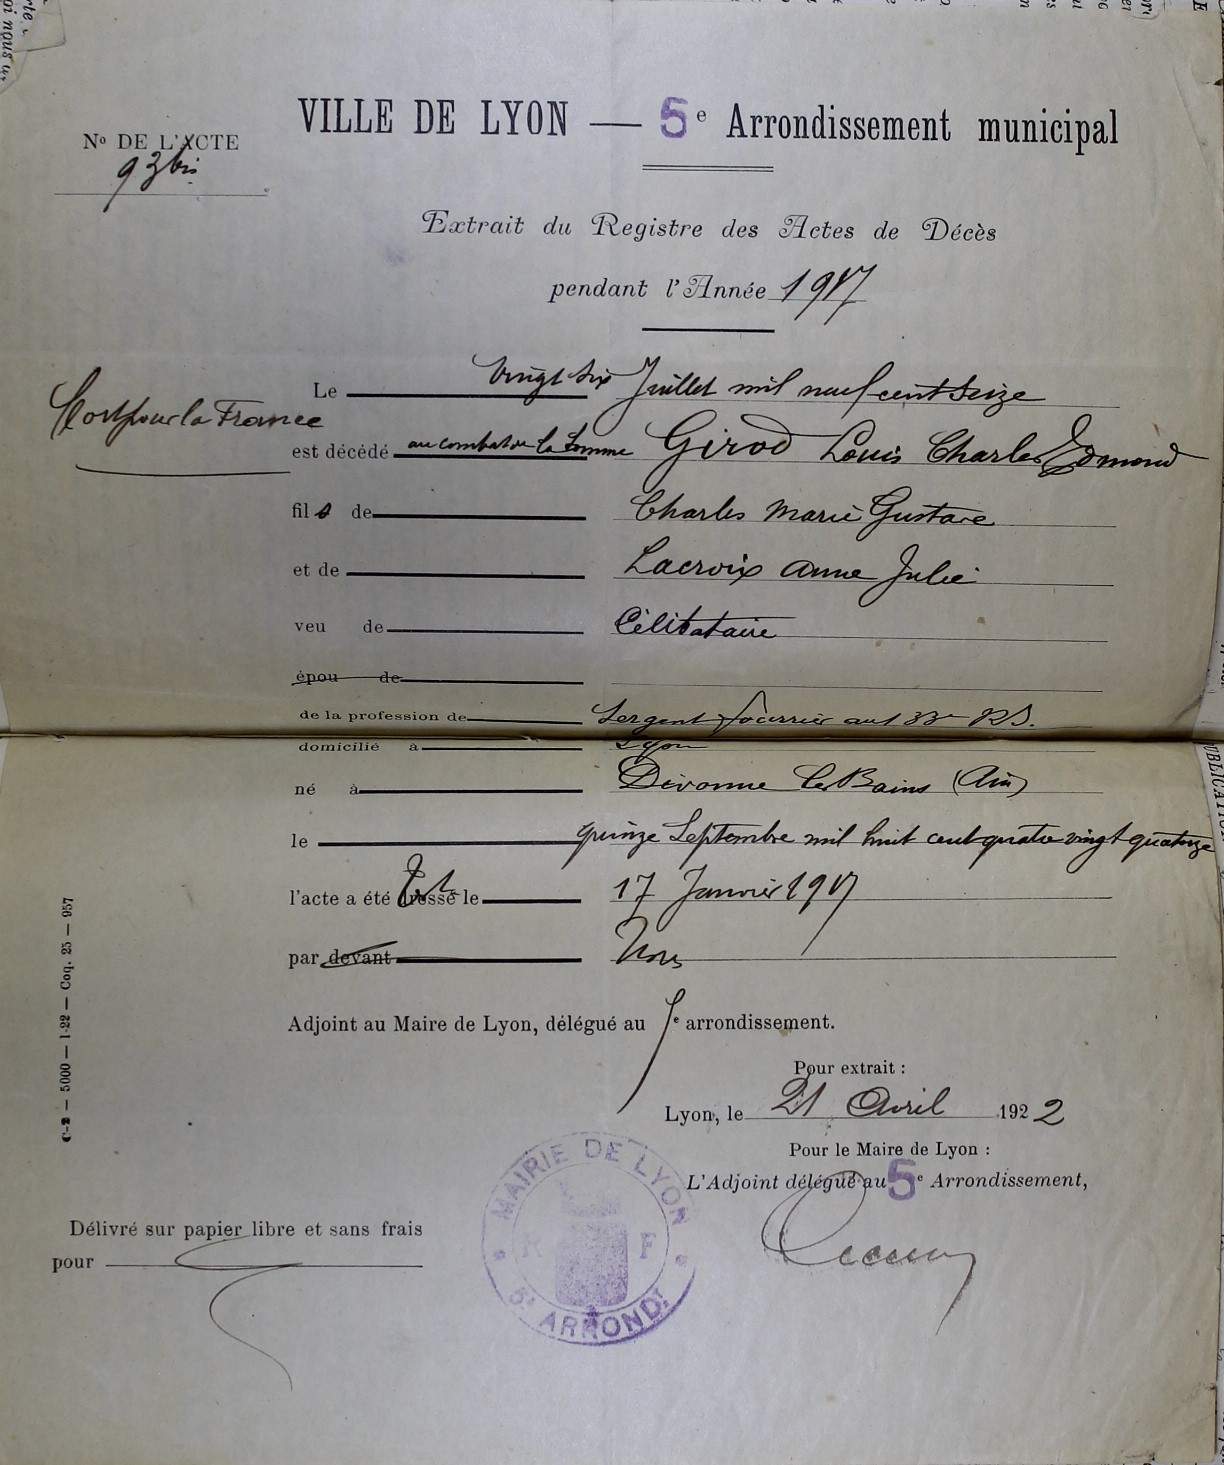 VILLE DE LYON — 5e Arrondissement municipal
No DE L'ACTE
93 bis
Extrait du Registre des Actes de Décès
pendant l'Année 1917
Le vingt six Juillet mil neuf cent seize
Mort pour la France
est décédé au combat de la Somme Girod Louis Charles Edmond
fils de Charles Marie Gustave
et de Lacroix Anne Julie
veu de Célibataire
épou de
de la profession de Sergent fourrier au 133e R.I.
domicilié à Lyon
né à Divonne les Bains (Ain)
le quinze Septembre mil huit cent quatre vingt quatorze
l'acte a été dressé le 17 Janvier 1917
par devant Nous
Adjoint au Maire de Lyon, délégué au 5e arrondissement.
Pour extrait :
Lyon, le 21 Avril 1922
Pour le Maire de Lyon :
L'Adjoint délégué au 5e Arrondissement,
MAIRIE DE LYON
R F
5e ARRONDt
Délivré sur papier libre et sans frais
pour
C-2 — 5000 — 1-22 — Coq. 25 — 957